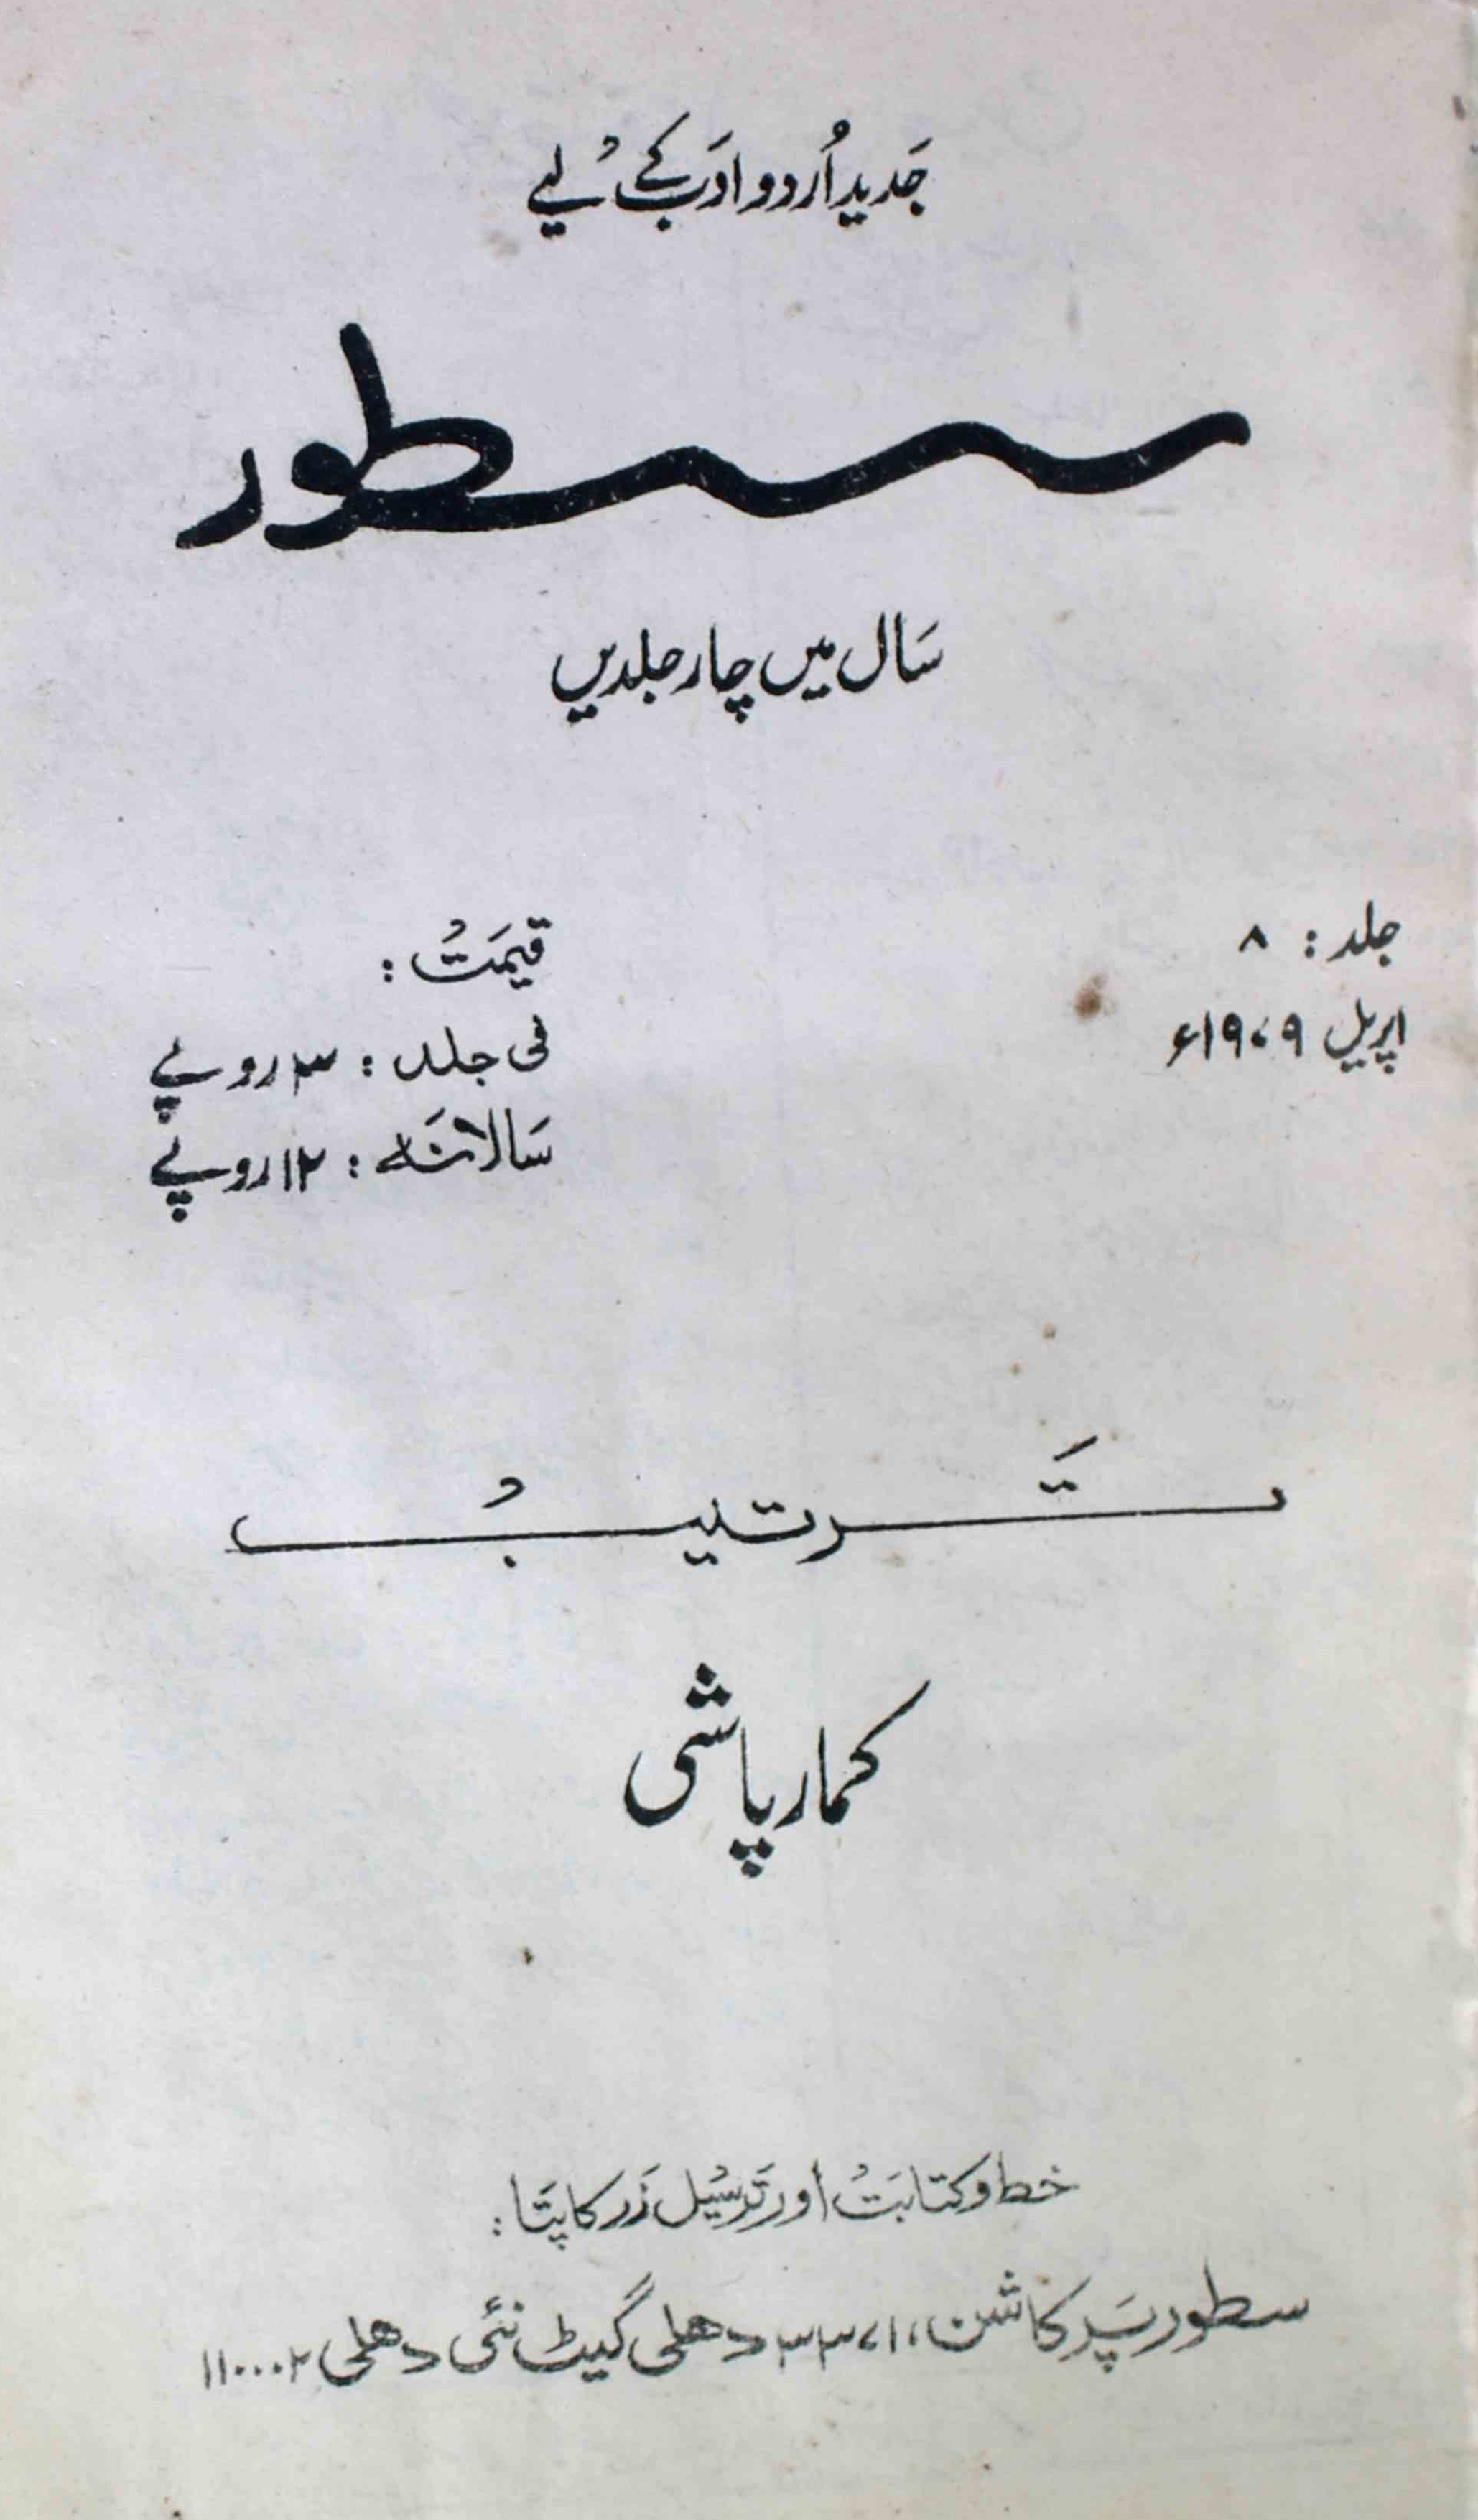 جدید اُردو ادب کے لیے
سطور
سال میں چار جلدیں
جلد : ۸
اپریل ۱۹۷۹ء
قیمت :
فی جلد : ۳ روپے
سالانہ : ۱۲ روپے
ترتیب
کمار پاشی
خط و کتابت اور ترسیل زر کا پتا :
سطور پرکاشن، ۳۳۷۱، دهلی گیٹ نئی دهلی ۱۱۰۰۰۲